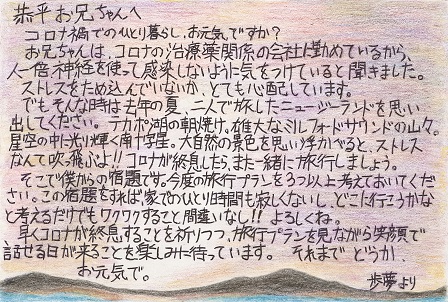 恭平お兄ちゃんへ
コロナ禍でのひとり暮らし、お元気ですか?
お兄ちゃんは、コロナの治療薬関係の会社に勤めているから、
人一倍神経を使って感染しないように気をつけていると聞きました。
ストレスをため込んでいないか、とても心配しています。
でもそんな時は去年の夏、二人で旅したニュージーランドを思い
出してください。テカポ湖の朝焼け。雄大なミルフォードサウンドの山々。
星空の中に光り輝く南十字星。大自然の景色を思い浮かべると、ストレス
なんて吹っ飛ぶよ!!コロナが終息したら、また一緒に旅行しましょう。
そこで僕からの宿題です。今度の旅行プランを3つ以上考えておいてくださ
い。この宿題をすれば家でのひとり時間も寂しくないし、どこに行こうかな
と考えるだけでもワクワクすること間違いなし!!よろしくね。
早くコロナが終息することを祈りつつ、旅行プランを見ながら笑顔で
話せる日が来ることを楽しみに待っています。それまでどうか、
お元気で。
歩夢より